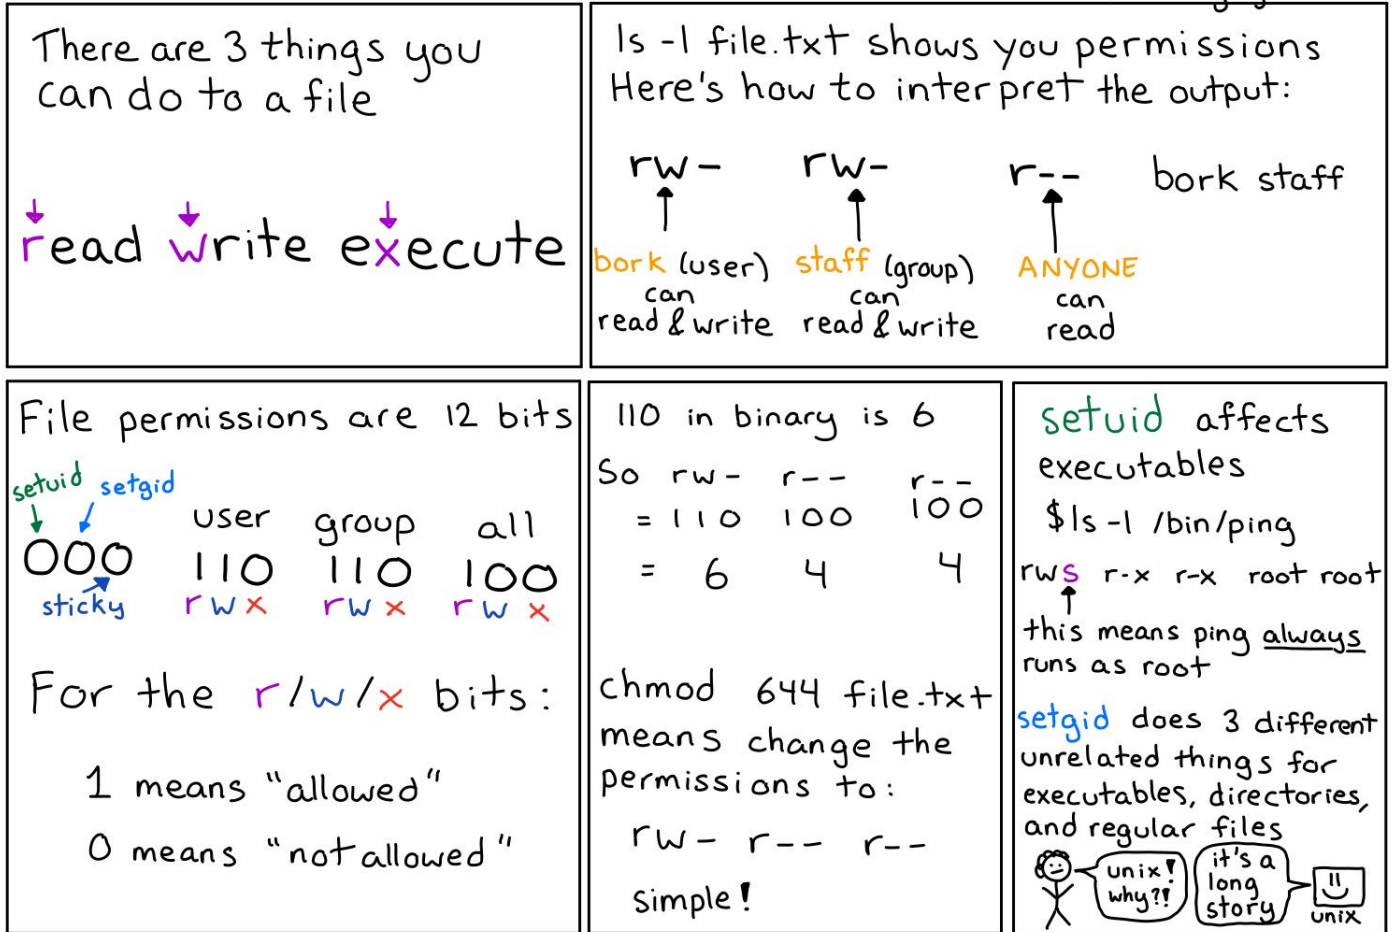 There are 3 things you
can do to a file
read write execute
ls -l file.txt shows you permissions
Here's how to interpret the output:
rw- rw- r-- bork staff
bork (user) staff (group) ANYONE
can can can
read & write read & write read
File permissions are 12 bits
setuid setgid
user group all
000 110 110 100
sticky r w x r w x r w x
For the r/w/x bits:
1 means "allowed"
0 means "not allowed"
110 in binary is 6
So rw- r-- r--
= 110 100 100
= 6 4 4
chmod 644 file.txt
means change the
permissions to:
rw- r-- r--
simple!
setuid affects
executables
$ls -l /bin/ping
rws r-x r-x root root
this means ping always
runs as root
setgid does 3 different
unrelated things for
executables, directories,
and regular files
unix!
why?!
it's a
long
story
unix